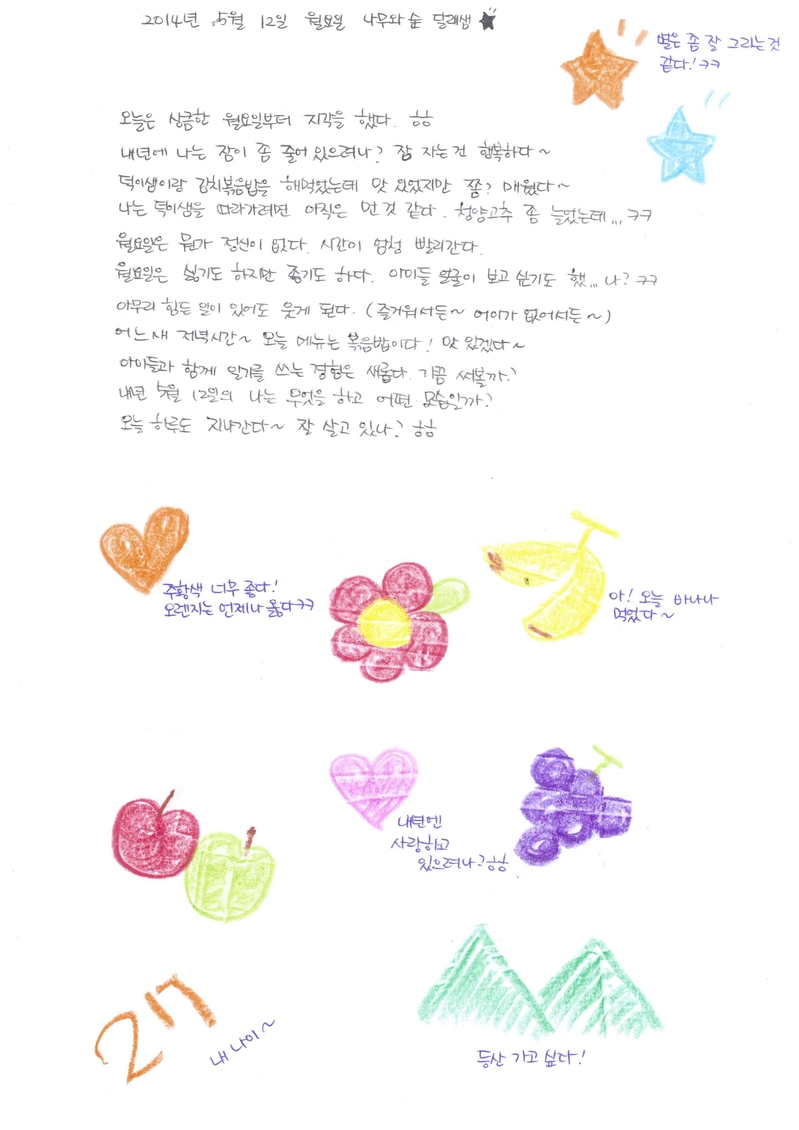 2014년 5월 12일 월요일 나무와 숲 달래샘
별은 좀 잘 그리는 것
같다! ㅋㅋ
오늘은 상큼한 월요일부터 지각을 했다. ㅎㅎ
내년에 나는 잠이 좀 줄어 있으려나? 잠 자는 건 행복하다~
덕이샘이랑 김치볶음밥을 해먹었는데 맛 있었지만 쫌? 매웠다~
나는 덕이샘을 따라가려면 아직은 먼 것 같다. 청양고추 좀 늘었는데... ㅋㅋ
월요일은 뭔가 정신이 없다. 시간이 엄청 빨리간다.
월요일은 싫기도 하지만 좋기도 하다. 아이들 얼굴이 보고 싶기도 했... 나? ㅋㅋ
아무리 힘든 일이 있어도 웃게 된다. (즐거워서든~ 어이가 없어서든~)
어느새 저녁시간~ 오늘 메뉴는 볶음밥이다! 맛 있겠다~
아이들과 함께 일기를 쓰는 경험은 새롭다. 가끔 써볼까?
내년 5월 12일의 나는 무엇을 하고 어떤 모습일까?
오늘 하루도 지나간다~ 잘 살고 있나? ㅎㅎ
주황색 너무 좋다!
오렌지는 언제나 옳다ㅋㅋ
아! 오늘 바나나
먹었다~
내년엔
사랑하고
있으려나? ㅎㅎ
27
내 나이~
등산 가고 싶다!